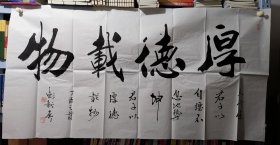 厚德載物
君子以
自強不
息地勢
坤
君子以
厚德
載物